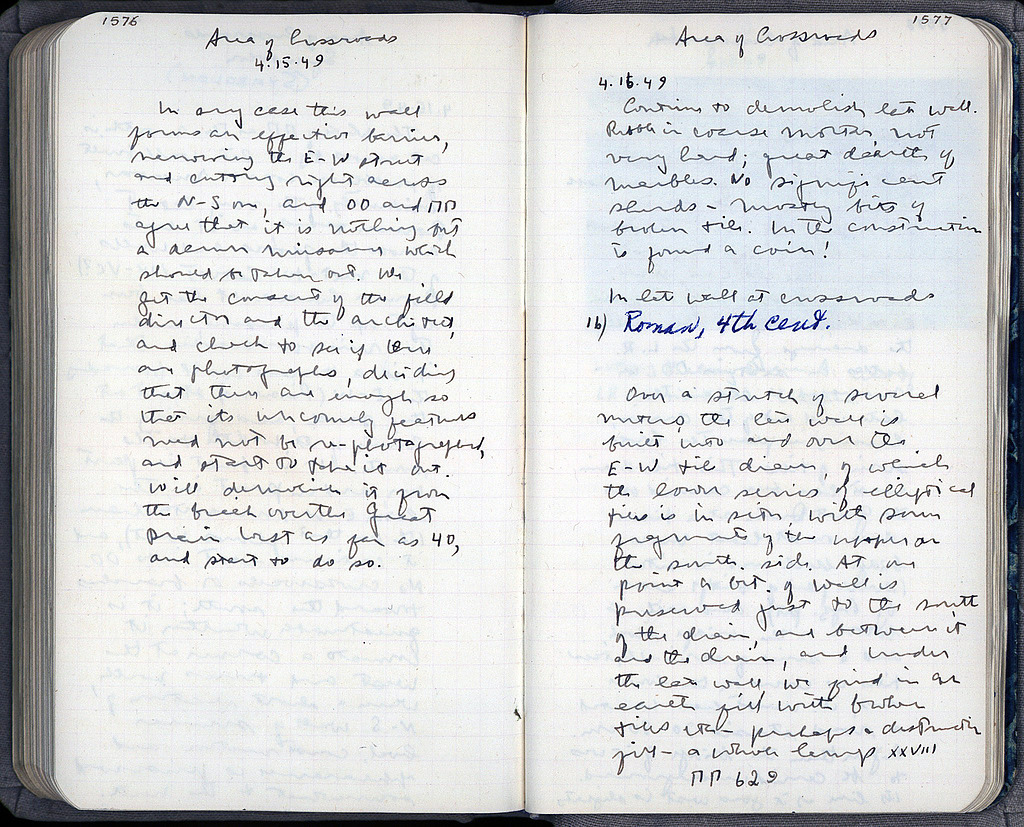 1576
Area of Crossroads
4.15.49
In any case this wall
forms an effective barrier,
narrowing the E-W street
and cutting right across
the N-S one, and OO and ΠΠ
agree that it is nothing but
a damn nuisance which
should be taken out. We
get the consent of the field
director and the architect,
and check to see if there
are photographs, deciding
that there are enough so
that its uncomely features
need not be re-photographed,
and start to take it out.
Will demolish it from
the break over the Great
Drain West as far as 40,
and start to do so.
1577
Area of Crossroads
4.16.49
Continue to demolish late wall.
Rubble in coarse mortar, not
very hard; great dearth of
marbles. No significant
sherds - mostly bits of
broken tile. In the construction
is found a coin!
In late wall at crossroads
16) Roman, 4th cent.
Over a stretch of several
meters the late wall is
built into and over the
E-W tile drain, of which
the lower series of elliptical
tiles is in situ, with some
fragments of the upper on
the south side. At one
point a bit of wall is
preserved just to the south
of the drain, and between it
and the drain, and under
the late wall we find in an
earth fill with broken
tiles etc - perhaps a destruction
fill - a whole lamp XXVIII
ΠΠ 629